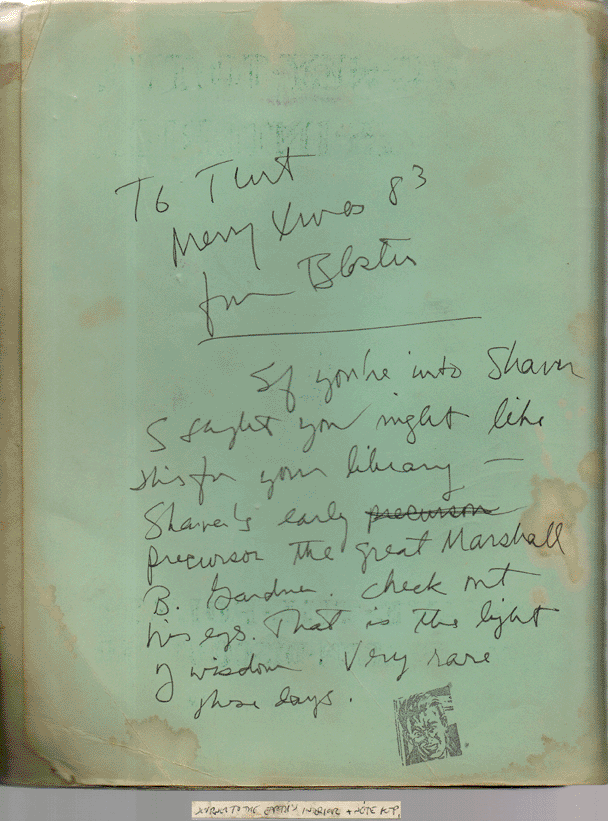 To Thurt
Merry Xmas 83
from Blaster
If you're into Shaver
I thought you might like
this for your library —
Shaver's early precursor
precursor the great Marshall
B. Gardner. Check out
his eyes. That is the light
of wisdom. Very rare
these days.
JOURNEY TO THE EARTH'S INTERIOR + NOTE